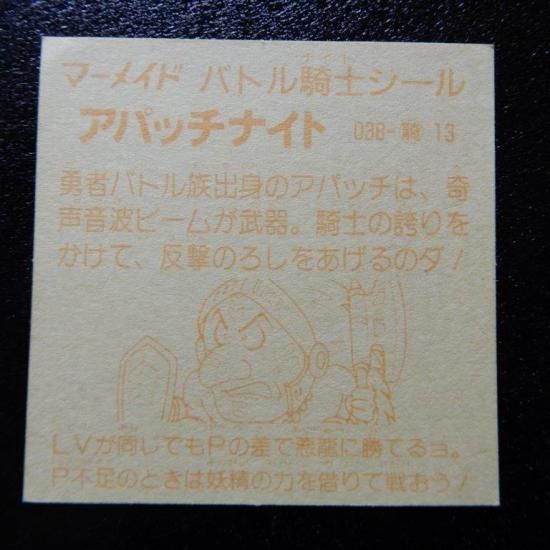 マーメイド バトル騎士シール
ナイト
アパッチナイト 03B- 13
勇者バトル族出身のアパッチは、奇
声音波ビームが武器。騎士の誇りを
かけて、反撃ののろしをあげるのダ!
LVが同じでもPの差で悪龍に勝てるヨ。
P不足のときは妖精の力を借りて戦おう!